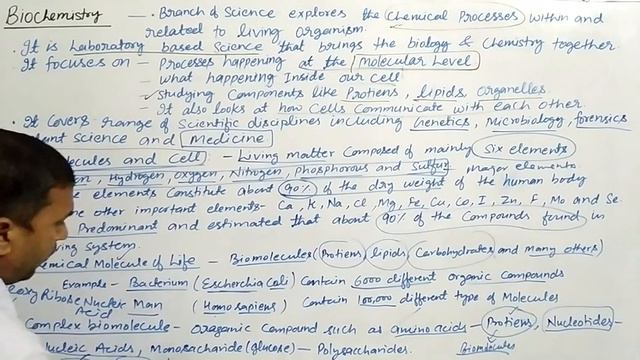 Biochemistry — . Branch of Science explores the Chemical Processes within and
related to living organism.
. It is Laboratory based Science that brings the biology & Chemistry together.
. It focuses on - Processes happening at the Molecular Level
- What happening Inside our Cell
- Studying Components like Protiens, lipids, organelles.
- It also looks at how Cells Communicate with each other.
. It Covers range of Scientific disciplines including Genetics, Microbiology, forensics
Science and Medicine
and Cell : - Living matter Composed of mainly Six elements
Hydrogen, Oxygen, Nitrogen, Phosphorous and Sulfur major elements
elements Constitute about 90% of the day weight of the human body
other important elements - Ca, K, Na, Cl, Mg, Fe, Cu, Co, I, Zn, F, Mo and Se.
Predominant and estimated that about 90% of the Compounds found in
System.
Molecule of Life - Biomolecules (Protiens lipids Carbohydrates and many others)
Example - Bacterium (Escherchia Coli) Contain 6000 different Organic Compounds
Ribose Nucleic Man (Homosapiens) Contain 100,000 different type of Molecules
Acid
Complex biomolecule - Oraganic Compound such as amino acids - Protiens, Nucleotides -
Acids, Monosacharide (glucose) - Polysaccharides. Biomolecules